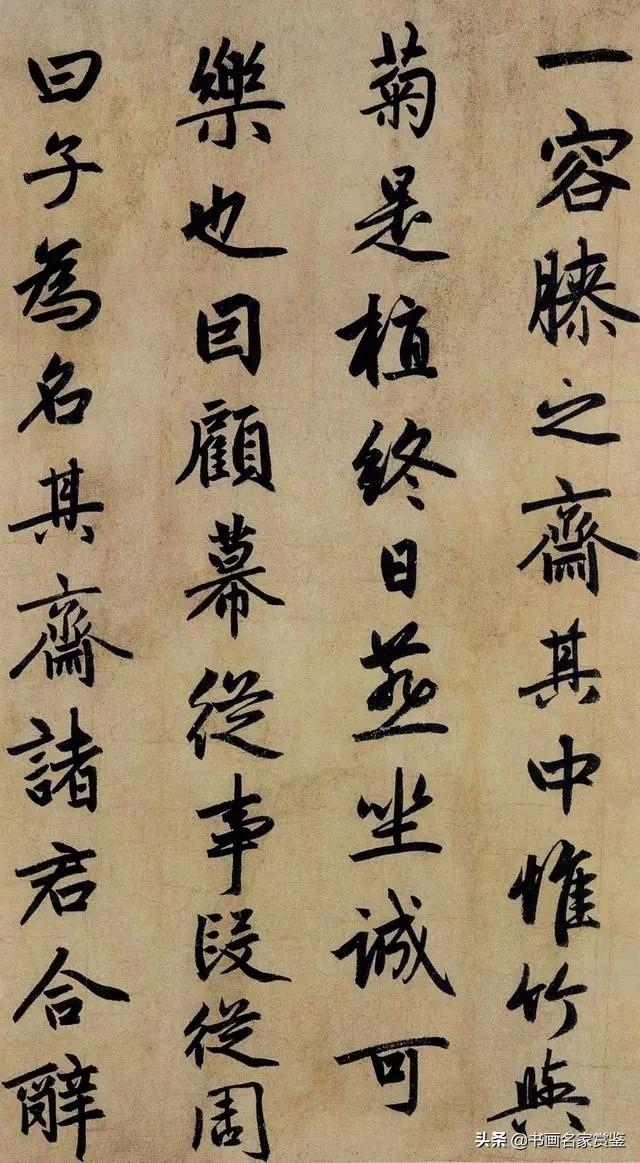 一容膝之齋其中惟竹與
菊是植終日燕坐誠可
樂也囙顧幕從事段從周
曰子為名其齋諸君合辭
头条 @书画名家赏鉴